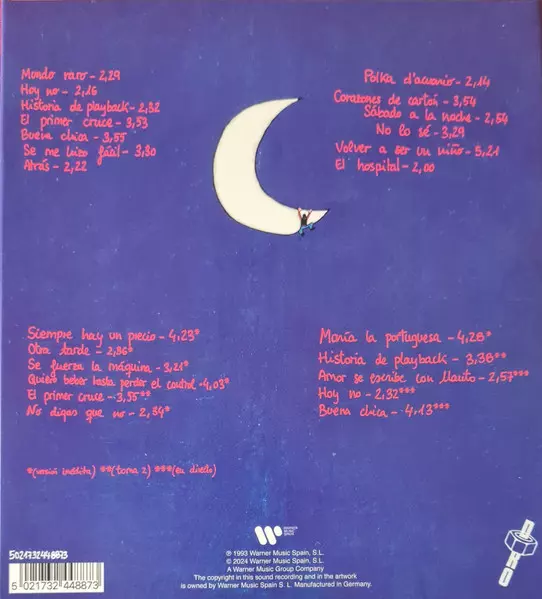 Mundo raro - 2,29
Hoy no - 2,16
Historia de playback - 2,32
El primer cruce - 3,53
Buena chica - 3,55
Se me hizo fácil - 3,30
Atrás - 2,22
Polka d'acuario - 2,14
Corazones de cartón - 3,54
Sábado a la noche - 2,54
No lo sé - 3,29
Volver a ser un niño - 5,21
El hospital - 2,00
Siempre hay un precio - 4,23*
Otra tarde - 2,36*
Se fuerza la máquina - 3,21*
Quiero beber hasta perder el control - 4,03*
El primer cruce - 3,55**
No digas que no - 2,34*
María la portuguesa - 4,28*
Historia de playback - 3,38**
Amor se escribe con llanto - 2,57***
Hoy no - 2,32***
Buena chica - 4,13***
*(versión inédita) **(toma 2) ***(en directo)
WARNER MUSIC SPAIN
℗ 1993 Warner Music Spain, S.L.
© 2024 Warner Music Spain, S.L.
A Warner Music Group Company
The copyright in this sound recording and in the artwork
is owned by Warner Music Spain S. L. Manufactured in Germany.
5021732448873
5 021732 448873
DRO